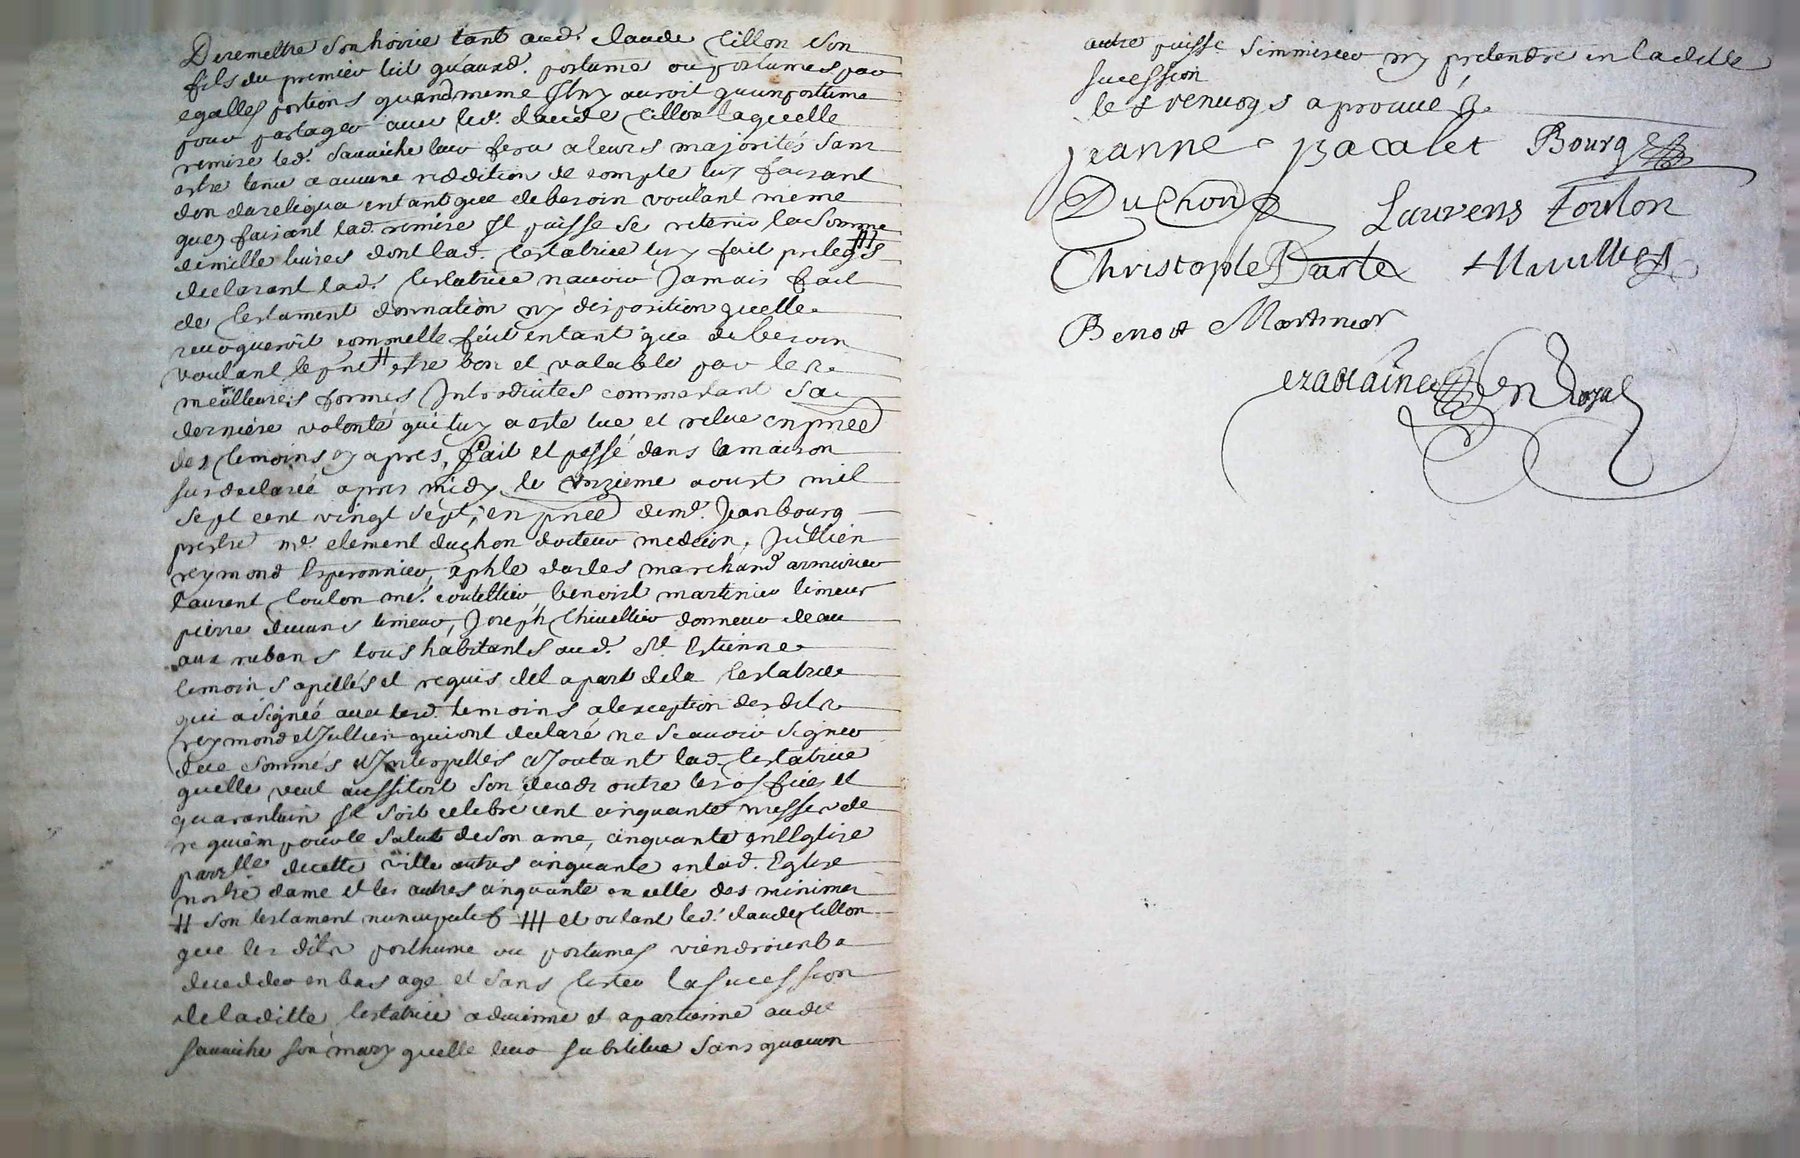 De remettre son hoirie tant aud. claude Cillon son
fils du premier lit qu'auxd. postume ou postumes par
egalles portions quand meme Il ny auroit qu'un postume
pour partager avec led. claude Cillon laquelle
remise led. Sauviche leur fera a leurs majorités sans
estre tenu a aucune reddition de compte luy faisant
don du reliqua entant que de besoin voulant meme
quen faisant lad. remise Il puisse se retenir la somme
de mille livres dont lad. testatrice luy fait prelegs #
declarant lad. testatrice navoir Jamais fait
de testament donnation ny disposition quelle
revoqueroit comme elle fait entant que de besoin
voulant le pnt # estre bon et valable par les
meilleures formes Introduites commestant sa
derniere volonté qui luy a este lue et relue en pnce
des temoins cy apres, fait et passé dans la maison
susdeclarée apres midy le onzieme aoust mil
sept cent vingt sept, en pnce de mr. Jean bourg
prestre mr. clement duchon docteur medecin, Jullien
reymond Esperonnier, xphle darles marchand armurier
laurent toulon me. coutellier benoist martinier limeur
pierre limeur, Joseph Chivallier donneur deau
aux rubans tous habitants aud. St. Estienne
temoins apellés et requis de la part dela testatrice
qui a signée avec lesd. temoins a lexception desdits
reymond et Jullien qui ont declaré ne scavoir signer
de ce sommés et Interpellés aJoutant lad. testatrice
quelle veut aussitost son decedz outre les offices et
quarantain Il soit celebré cent cinquante messes de
requiem pour le salut de son ame, cinquante en lEglise
parlle de cette ville autres cinquante en lad. Eglise
nostre dame et les autres cinquante en celle des minimes
# son testament nuncupatif ## et ou tant led. claude Cillon
que les dits posthume ou postumes viendroient a
decedder en bas age et sans tester la sucession
de laditte testatrice advienne et apartienne audit
Sauviche son mary quelle leur substitue sans quaucun
autre puisse simmiscer ny pretendre en laditte
sucession
les renvoys aprouvé
jeanne Bacalet Bourg
Duchon Laurens toulon
Christophle Darle
Benoit Martinier
ezablaine